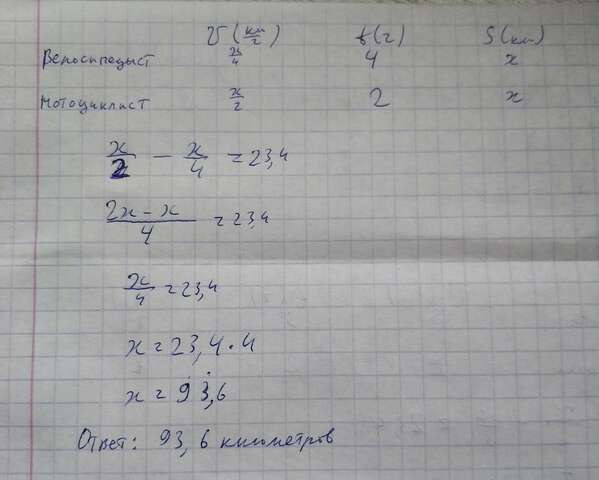 V (км/г) t(г) S(км)
Велосипедыст x/4 4 x
мотоциклист x/2 2 x
x/2 - x/4 = 23,4
2x-x/4 = 23,4
x/4 = 23,4
x = 23,4 · 4
x = 93,6
Ответ: 93,6 километров